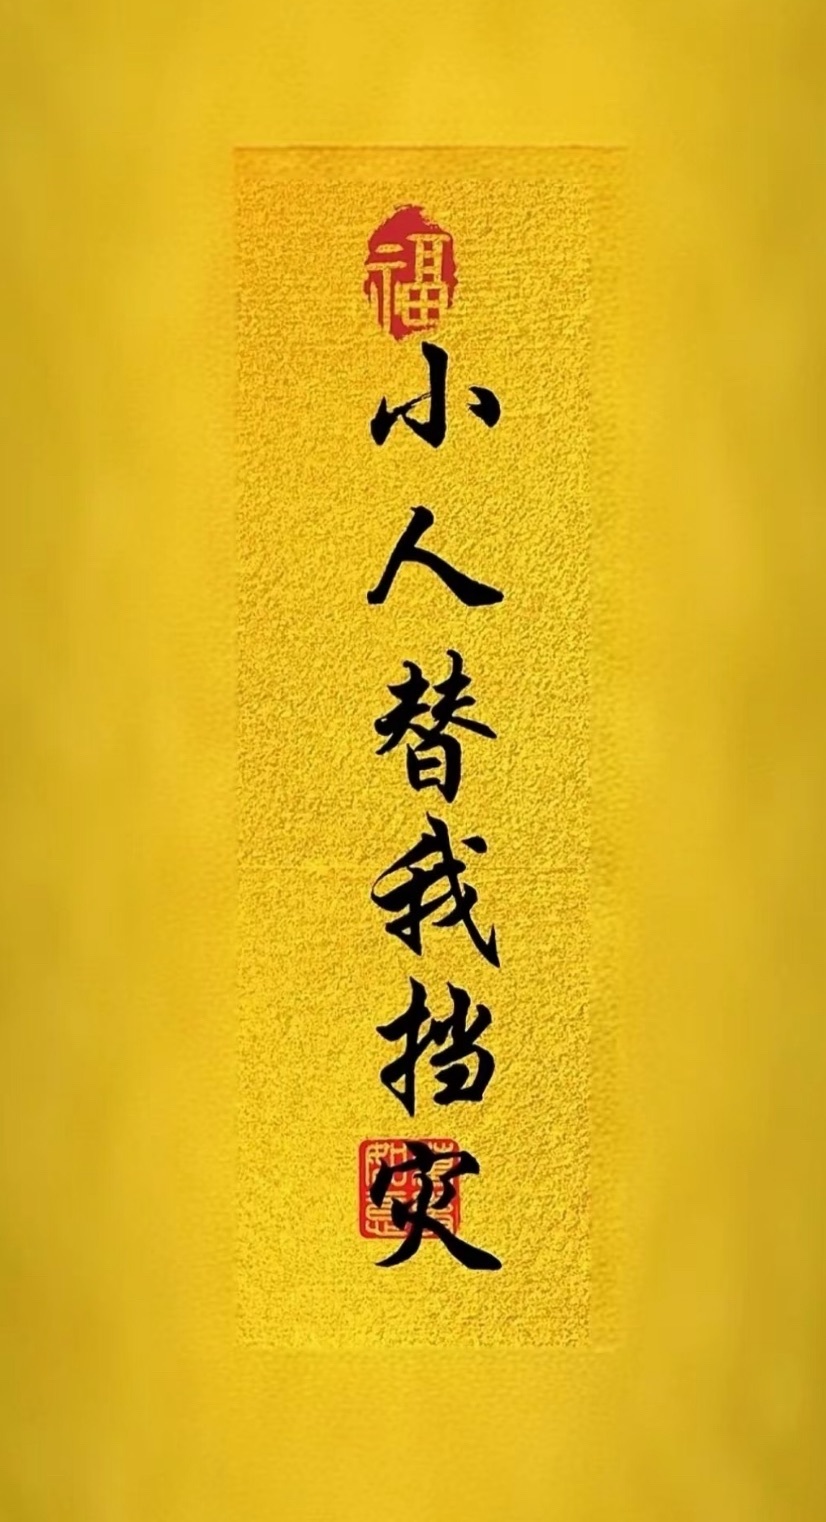 福
小人替我挡灾